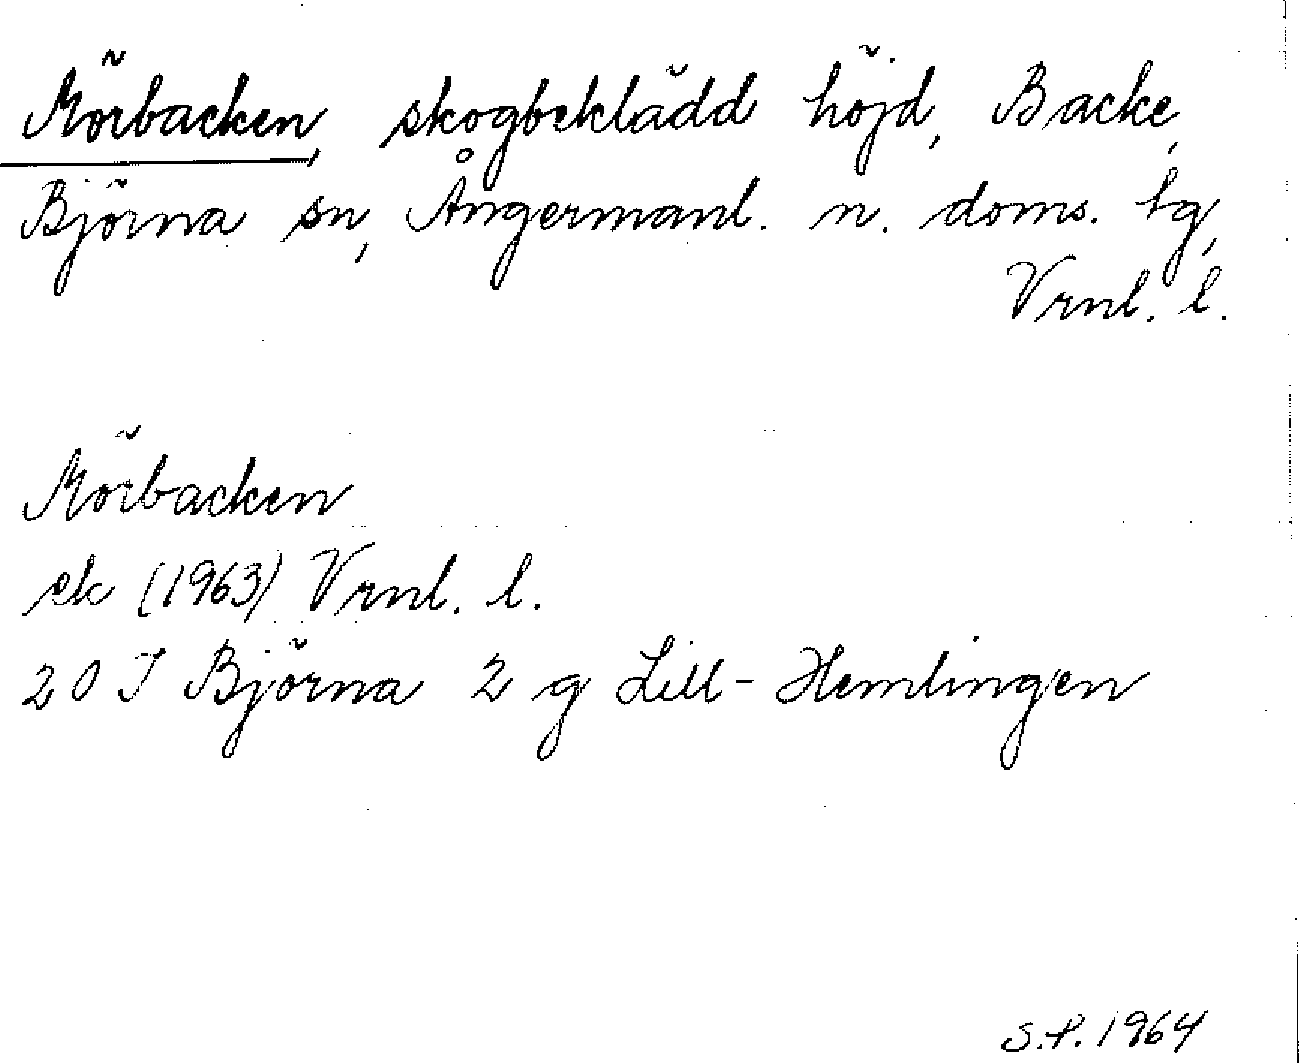 Mörbacken, skogbeklädd höjd, Backe,
Björna sn, Ångermanl. n. doms. tg,
Vrnl. l.
Mörbacken
ek (1963) Vrnl. l.
20 I Björna 2 g Lill-Hemlingen
S.P. 1964